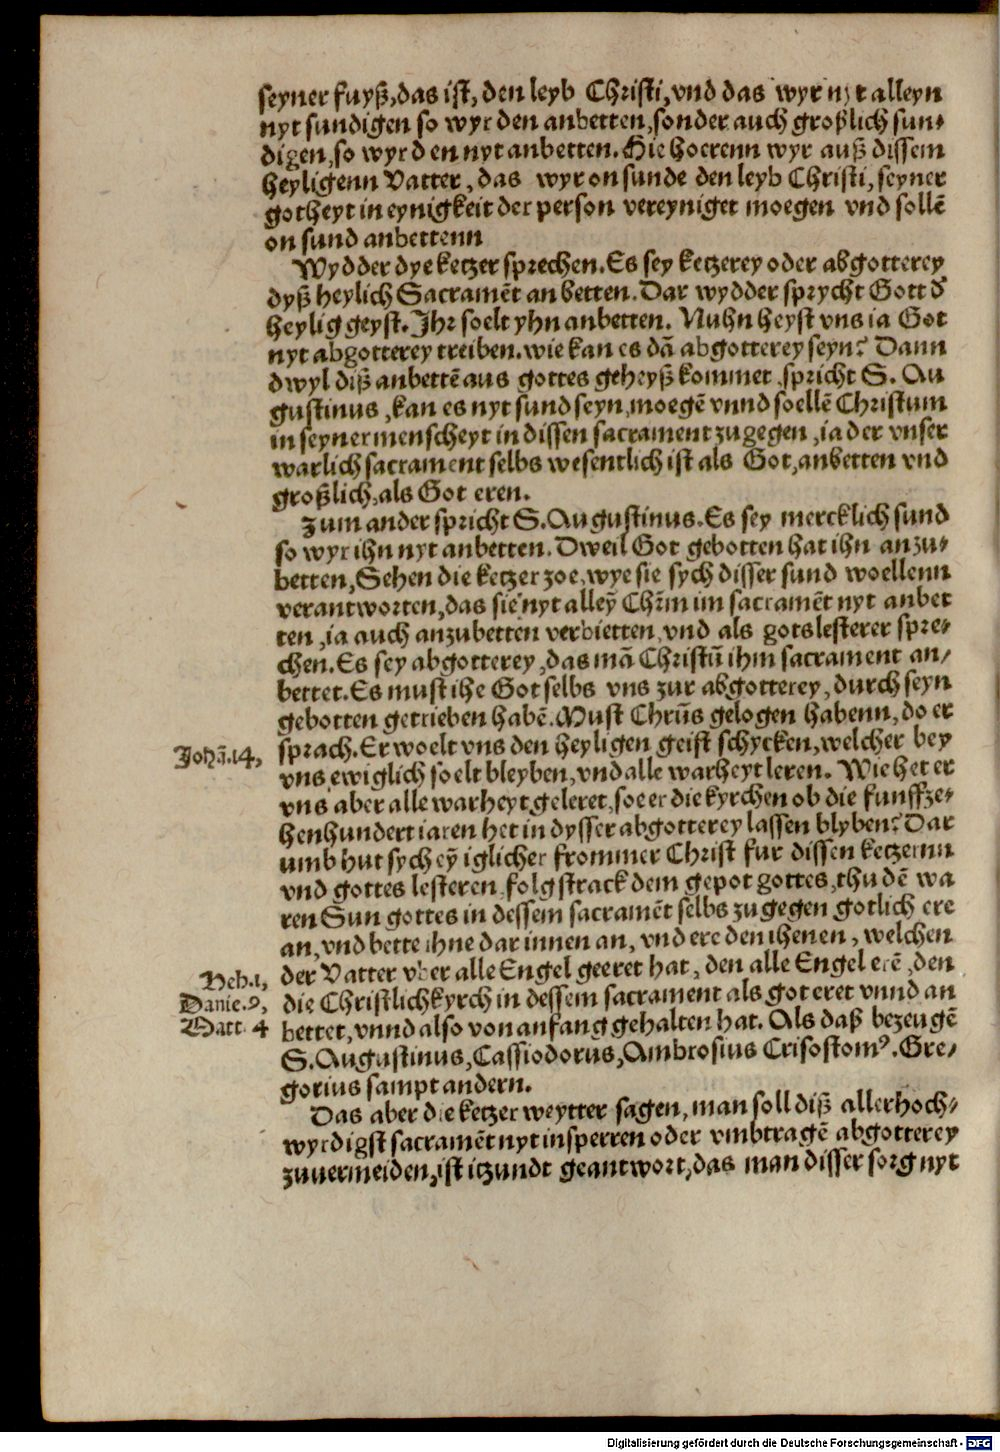 seyner fuyß, das ist, den leyb Christi, vnd das wyr nyt alleyn
nyt sundigen so wyr den anbetten, sonder auch großlich sun-
digen, so wyr den nyt anbetten. Hie hoerenn wyr auß dissem
heyligenn Vatter, das wyr on sunde den leyb Christi, seyner
gotheyt in eynigkeit der person vereyniget moegen vnd sollē
on sund anbettenn
Wydder dye ketzer sprechen. Es sey ketzerey oder abgotterey
dyß heylich Sacramēt anbetten. Dar wydder sprycht Gott d̕
heylig geyst. Ihr soelt yhn anbetten. Nuhn heyst vns ia Got
nyt abgotterey treiben. wie kan es dā abgotterey seyn? Dann
dwyl diß anbettē aus gottes geheyß kommet, spricht S. Au
gustinus, kan es nyt sund seyn, moegē vnnd soellē Christum
in seyner menscheyt in dissen sacrament zugegen, ia der vnser
warlich sacrament selbs wesentlich ist als Got, anbetten vnd
großlich, als Got eren.
Zum ander spricht S. Augustinus. Es sey mercklich sund
so wyr ihn nyt anbetten. Dweil Got gebotten hat ihn anzu-
betten, Sehen die ketzer zoe, wye sie sych disser sund woellenn
verantworten, das sie nyt alleȳ Chr̄m im sacramēt nyt anbet
ten, ia auch anzubetten verbietten, vnd als gotslesterer spre-
chen. Es sey abgotterey, das mā Christū ihm sacrament an-
bettet. Es must ihe Got selbs vns zur abgotterey, durch seyn
gebotten getrieben habē. Must Chrūs gelogen habenn, do er
Johā. 14, sprach. Er woelt vns den heyligen geist schycken, welcher bey
vns ewiglich soelt bleyben, vnd alle warheyt leren. Wie het er
vns aber alle warheyt geleret, soe er die kyrchen ob die funffze-
henhundert iaren het in dysser abgotterey lassen blyben? Dar
umb hut sych eȳ iglicher frommer Christ fur dissen ketzernn
vnd gottes lesteren, folg strack dem gepot gottes, thu dē wa
ren Sun gottes in dessem sacramēt selbs zugegen gotlich ere
an, vnd bette ihne dar innen an, vnd ere den ihenen, welchen
Heb. 1, der Vatter vber alle Engel geeret hat, den alle Engel erē, den
Danie. 9, die Christlich kyrch in dessem sacrament als got eret vnnd an
Matt. 4 bettet, vnnd also von anfang gehalten hat. Als daß bezeugē
S. Augustinus, Cassiodorus, Ambrosius Crisostomꝰ. Gre-
gorius sampt andern.
Das aber die ketzer weytter sagen, man soll diß allerhoch-
wyrdigst sacramēt nyt insperren oder vmbtragē abgotterey
zuuermeiden, ist itzundt geantwort, das man disser sorg nyt
Digitalisierung gefördert durch die Deutsche Forschungsgemeinschaft - DFG